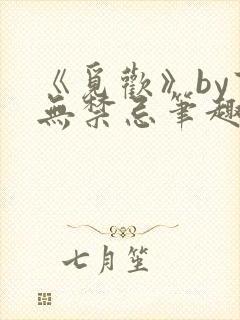 《覓歡》by
無禁忌筆趣
七月笙